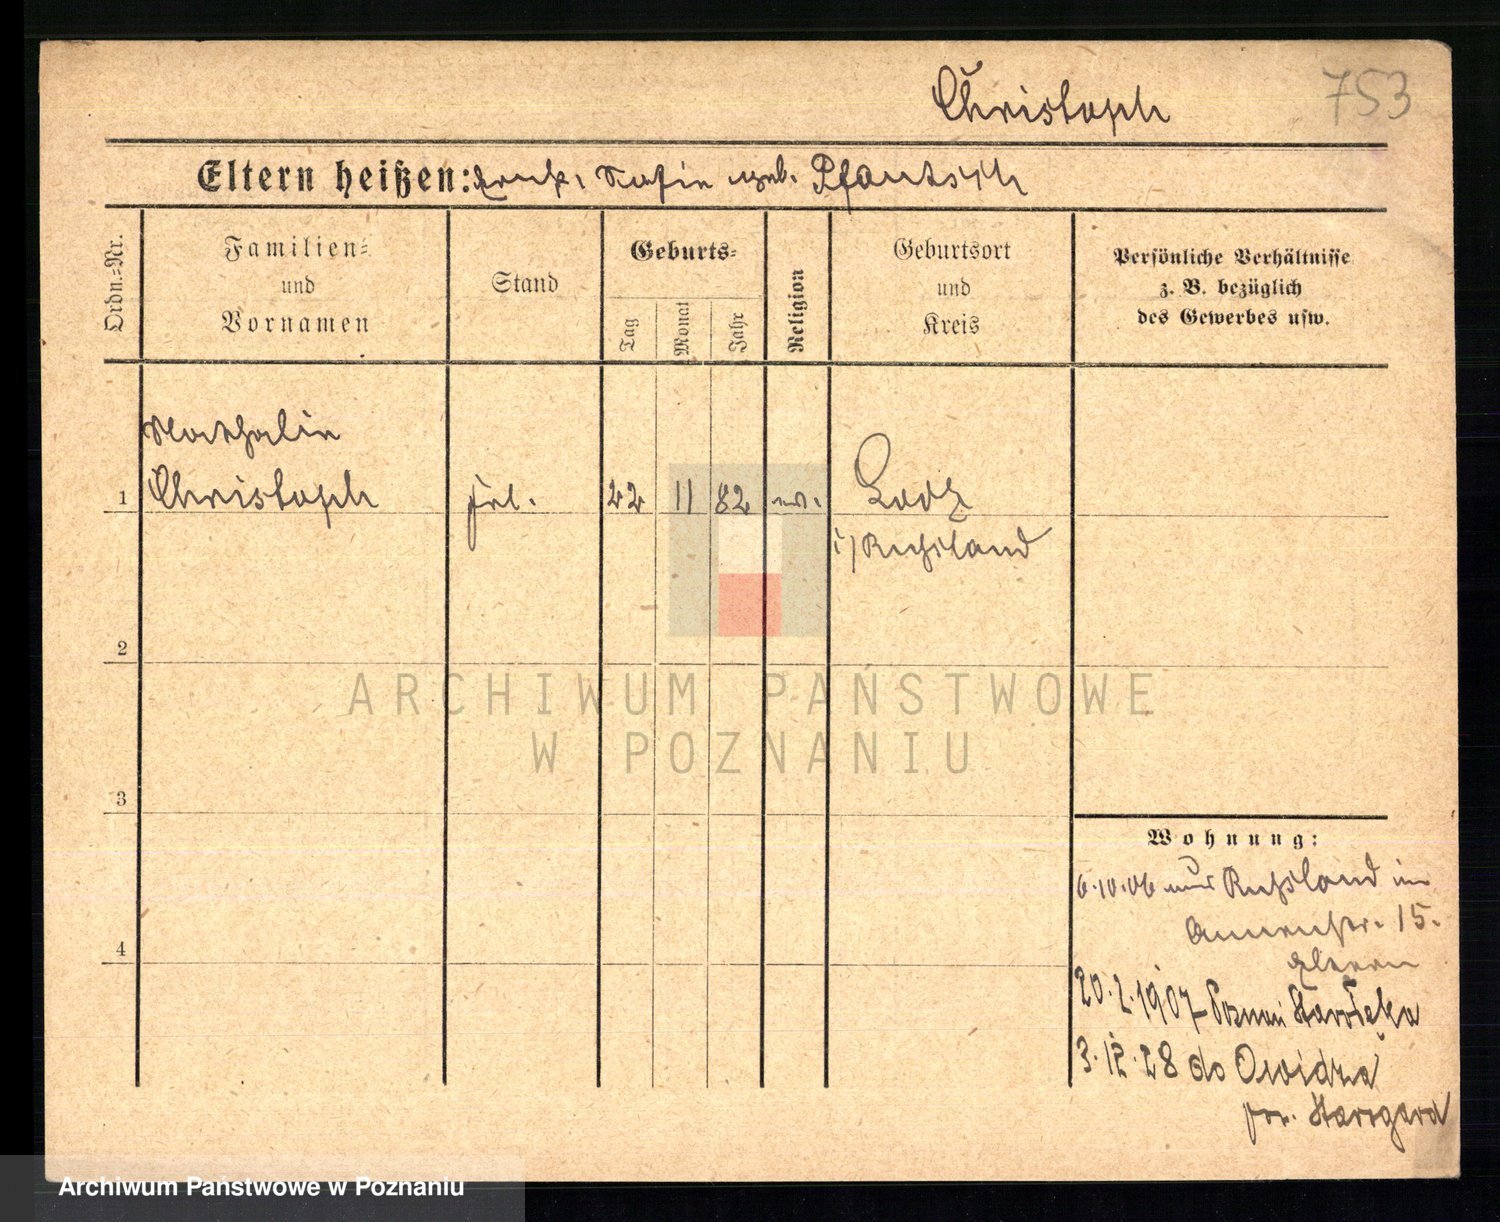 Christoph
753
Eltern heißen: Sofie geb. Pfantsch
Ordn.-Nr.
Familien-
und
Vornamen
Stand
Geburts-
Tag
Monat
Jahr
Religion
Geburtsort
und
Kreis
Persönliche Verhältnisse
z. B. bezüglich
des Gewerbes usw.
Nathalie
1 Christoph frl. 22 11 82 ev. Lodz
i/Russland
2
3
4
Wohnung:
6.10.06 aus Russland in
15.
Eltern
20.2.1907 Poznań Starołęka
3.12.28 do Owidza
pow. Starogard
ARCHIWUM PAŃSTWOWE
W POZNANIU
Archiwum Państwowe w Poznaniu